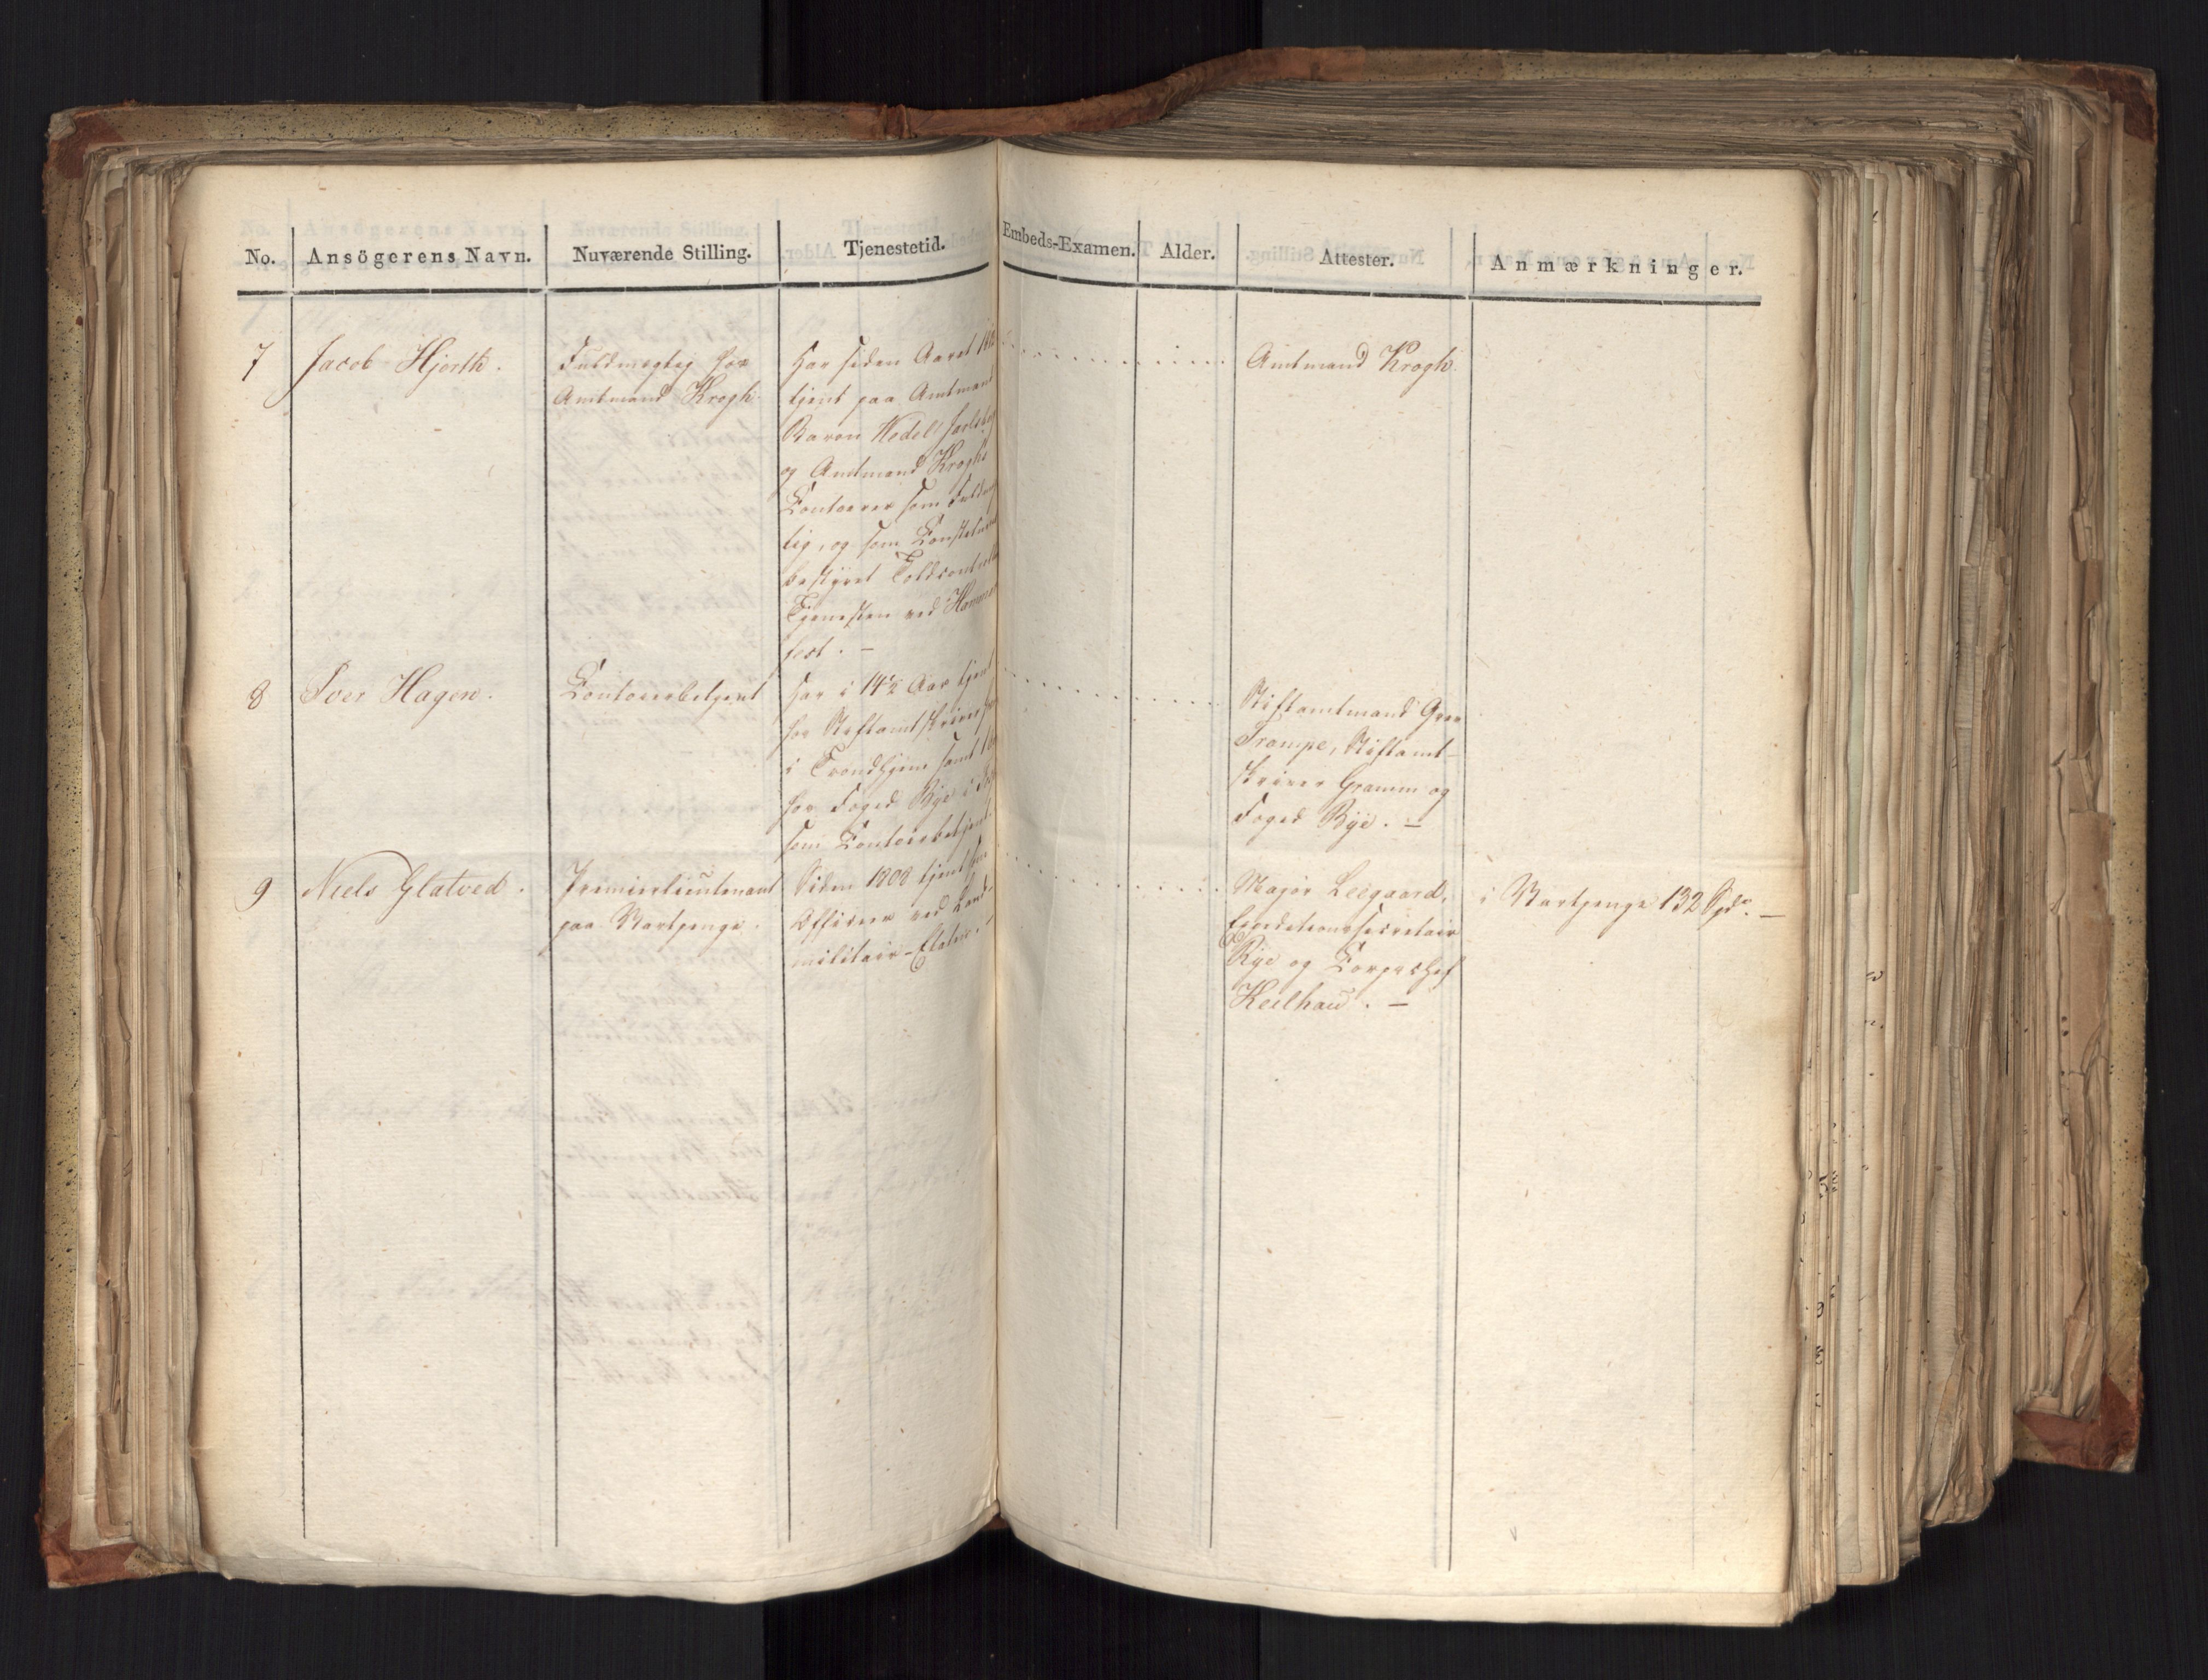 No. Ansögerens Navn. Nuværende Stilling. Tjenestetid. Embeds-Examen. Alder. Attester. Anmærkninger.
7 Jacob Hjorth. Fuldmægtig hos
Amtmand Krogh.
Har siden Aaret
tjent paa Amtmand
Baron Wedel Jarlsberg
og Amtmand Kroghs
Contoirer som
tig, og som
bestyret
Tjenesten ved Hammer-
fest. —
Amtmand Krogh.
8 Iver Hagen. Contoirbetjent
Har i 14½ Aar tjent
hos Stiftamtskriveren
i Trondhjem samt
hos Foged Bye i
som Contoirbetjent.
Stiftamtmand Grev
Trampe, Stiftamt-
skriver Gramm og
Foged Bye. —
9 Niels Glatved. Premierlieutenant
paa Vartpenge.
Siden 1808 tjent som
Officeer ved Land-
militair-Etaten. —
Major Leegaard,
Expeditionssecretair
Rye og Corpschef
Keilhau. —
i Vartpenge 132 Spd. —